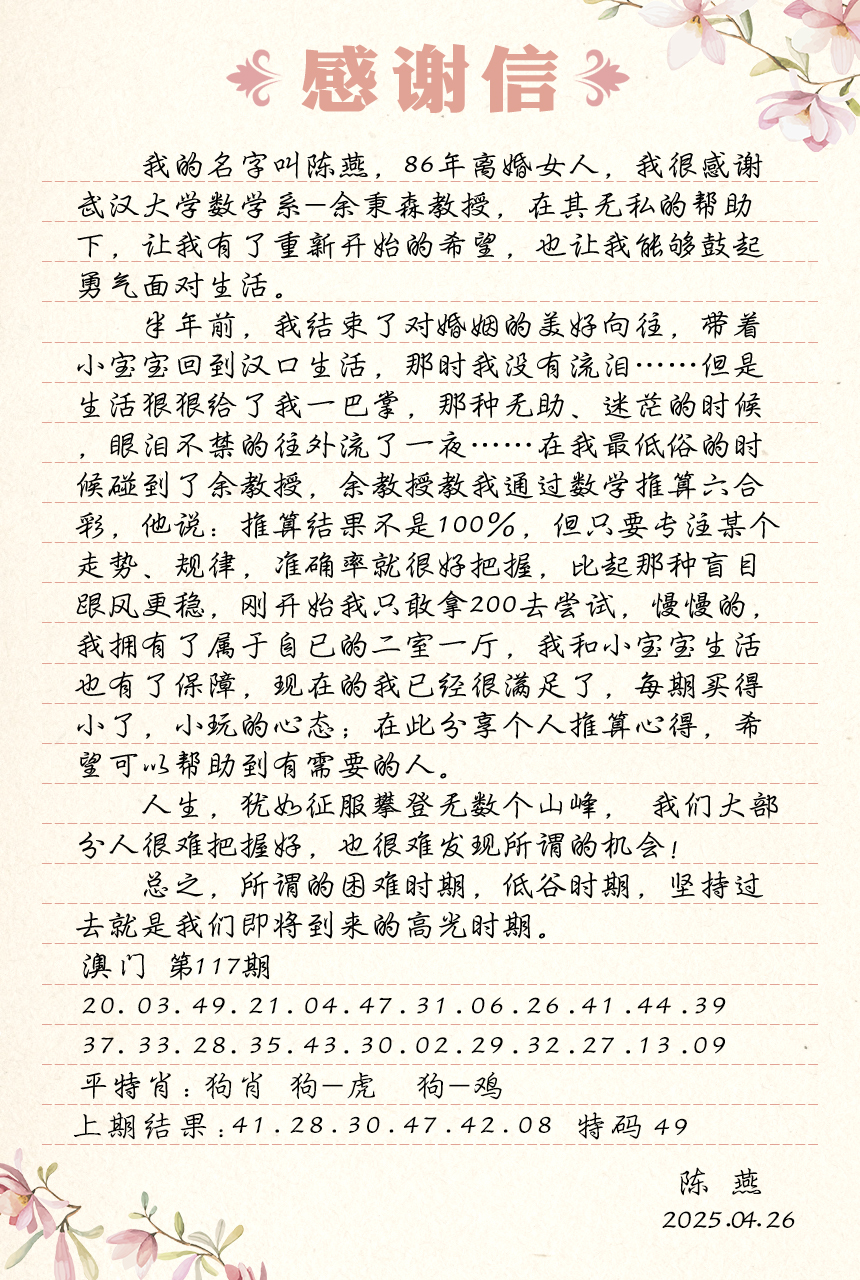 感谢信
我的名字叫陈燕，86年离婚女人，我很感谢
武汉大学数学系—余秉森教授，在其无私的帮助
下，让我有了重新开始的希望，也让我能够鼓起
勇气面对生活。
半年前，我结束了对婚姻的美好向往，带着
小宝宝回到汉口生活，那时我没有流泪……但是
生活狠狠给了我一巴掌，那种无助、迷茫的时候
，眼泪不禁的往外流了一夜……在我最低俗的时
候碰到了余教授，余教授教我通过数学推算六合
彩，他说：推算结果不是100%，但只要专注某个
走势、规律，准确率就很好把握，比起那种盲目
跟风更稳，刚开始我只敢拿200去尝试，慢慢的，
我拥有了属于自已的二室一厅，我和小宝宝生活
也有了保障，现在的我已经很满足了，每期买得
小了，小玩的心态；在此分享个人推算心得，希
望可以帮助到有需要的人。
人生，犹如征服攀登无数个山峰， 我们大部
分人很难把握好，也很难发现所谓的机会！
总之，所谓的困难时期，低谷时期，坚持过
去就是我们即将到来的高光时期。
澳门 第117期
20.03.49.21.04.47.31.06.26.41.44.39
37.33.28.35.43.30.02.29.32.27.13.09
平特肖：狗肖 狗—虎 狗—鸡
上期结果：41.28.30.47.42.08 特码 49
陈 燕
2025.04.26